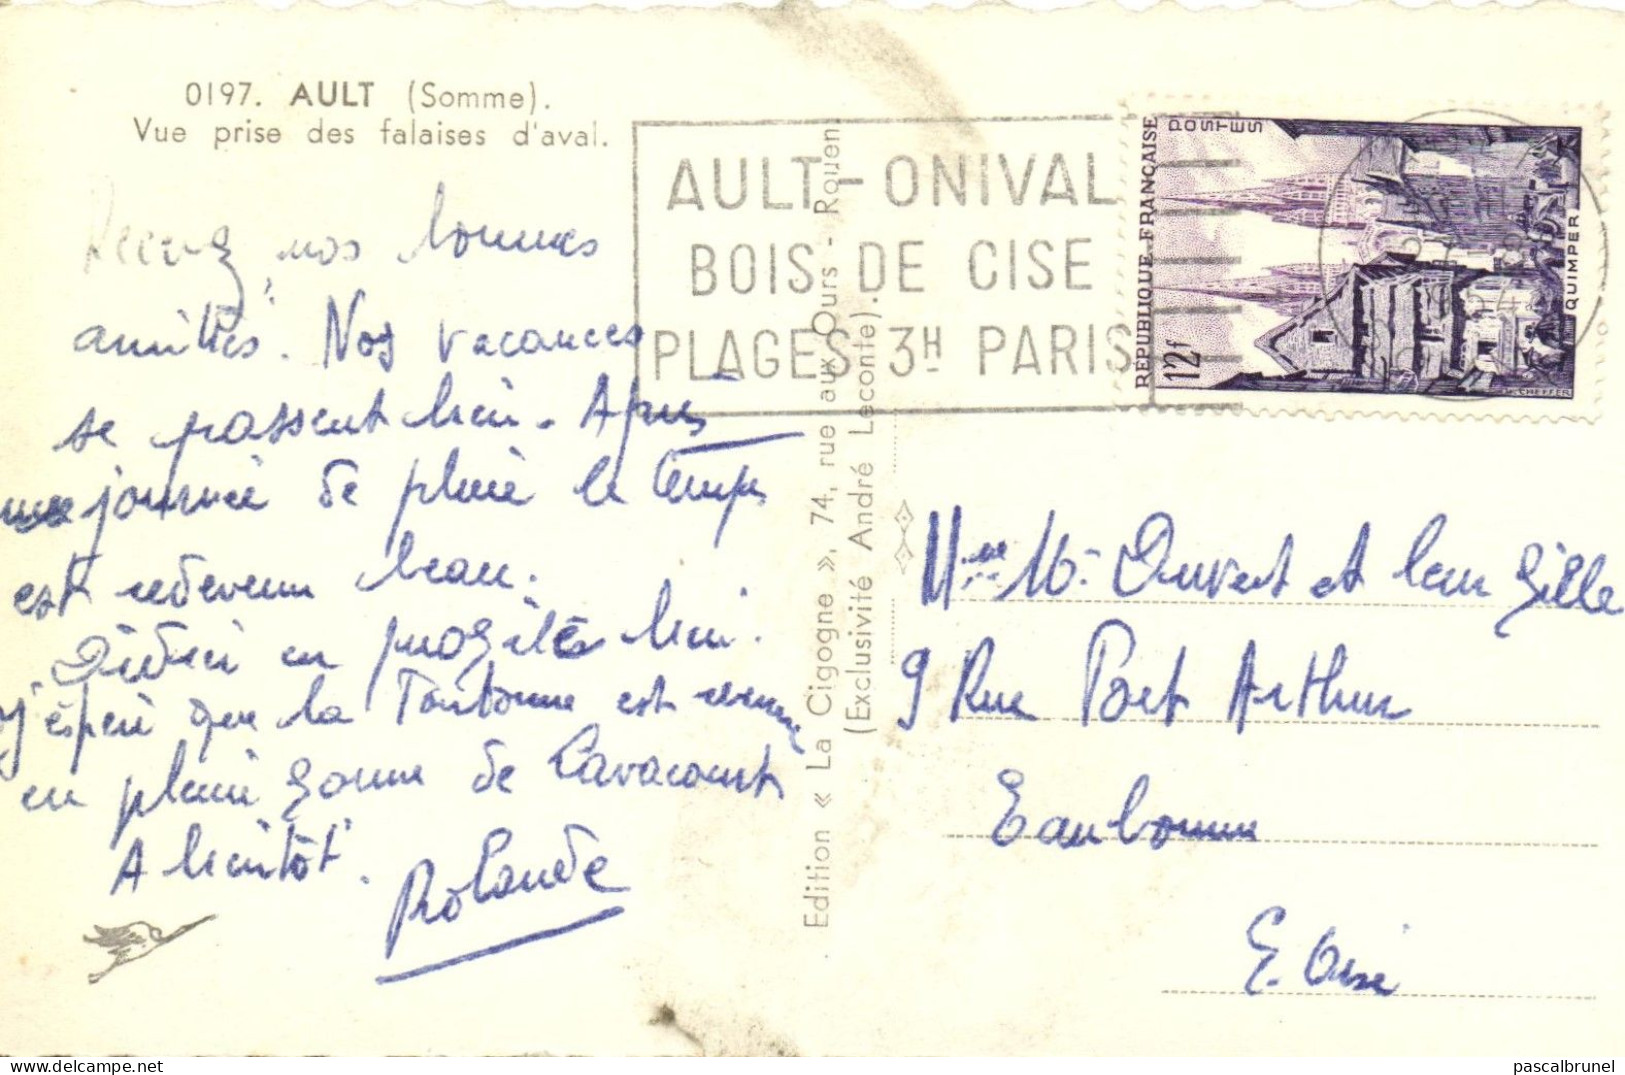 0197. AULT (Somme).
Vue prise des falaises d'aval.
Recevez nos bonnes
amitiés. Nos vacances
se passent bien. Après
une journée de pluie le temps
est redevenu beau.
Didier en profite bien.
J'espère que la Tourbonne est revenue
en pleine forme de Lavacourt
A bientôt.
Rolande
Edition « La Cigogne », 74, rue aux Ours - Rouen.
(Exclusivité André Leconte).
AULT-ONIVAL
BOIS DE CISE
PLAGES 3H PARIS
REPUBLIQUE FRANÇAISE
POSTES
12f
QUIMPER
CHEFFER
Mme M. Duvert et leur fille
9 Rue Port Arthur
Eaubonne
S. Oise
pascalbrunel